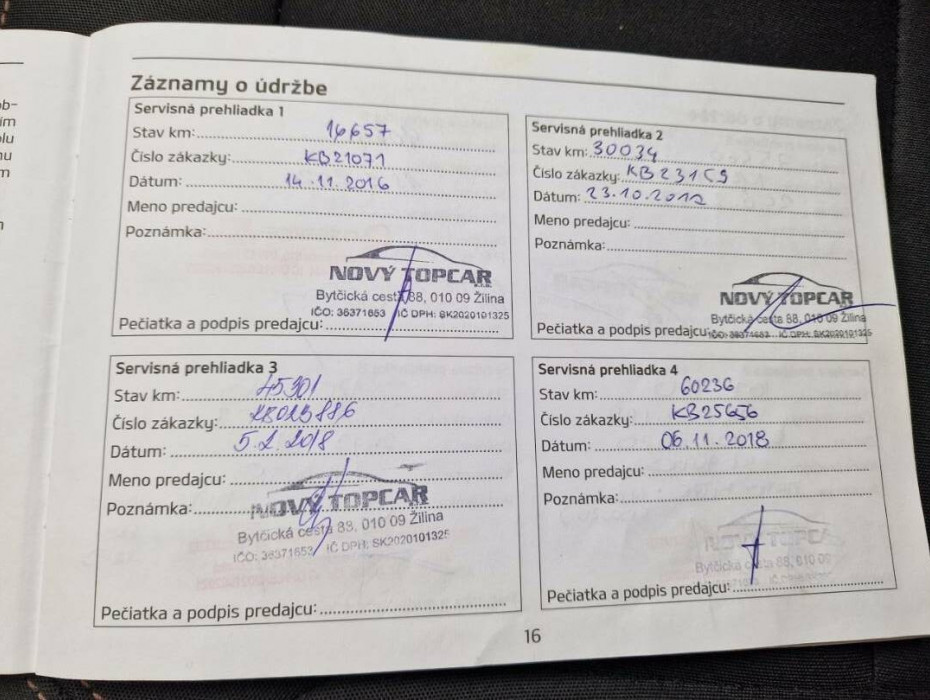 Záznamy o údržbe
Servisná prehliadka 1
Stav km: 16657
Číslo zákazky: KB21071
Dátum: 14.11.2016
Meno predajcu:
Poznámka:
NOVÝ TOPCAR
Bytčická cesta 88, 010 09 Žilina
IČO: 36371653 IČ DPH: SK2020101325
Pečiatka a podpis predajcu:
Servisná prehliadka 2
Stav km: 30034
Číslo zákazky: KB231C9
Dátum: 23.10.2017
Meno predajcu:
Poznámka:
NOVÝ TOPCAR
Bytčická cesta 88, 010 09 Žilina
IČO: 36371653 IČ DPH: SK2020101325
Pečiatka a podpis predajcu:
Servisná prehliadka 3
Stav km: 45301
Číslo zákazky:
Dátum: 5.2.2018
Meno predajcu:
Poznámka:
NOVÝ TOPCAR
Bytčická cesta 88, 010 09 Žilina
IČO: 36371653 IČ DPH: SK2020101325
Pečiatka a podpis predajcu:
Servisná prehliadka 4
Stav km: 60236
Číslo zákazky: KB25656
Dátum: 06.11.2018
Meno predajcu:
Poznámka:
Bytčická cesta 88, 010 09
Pečiatka a podpis predajcu:
16